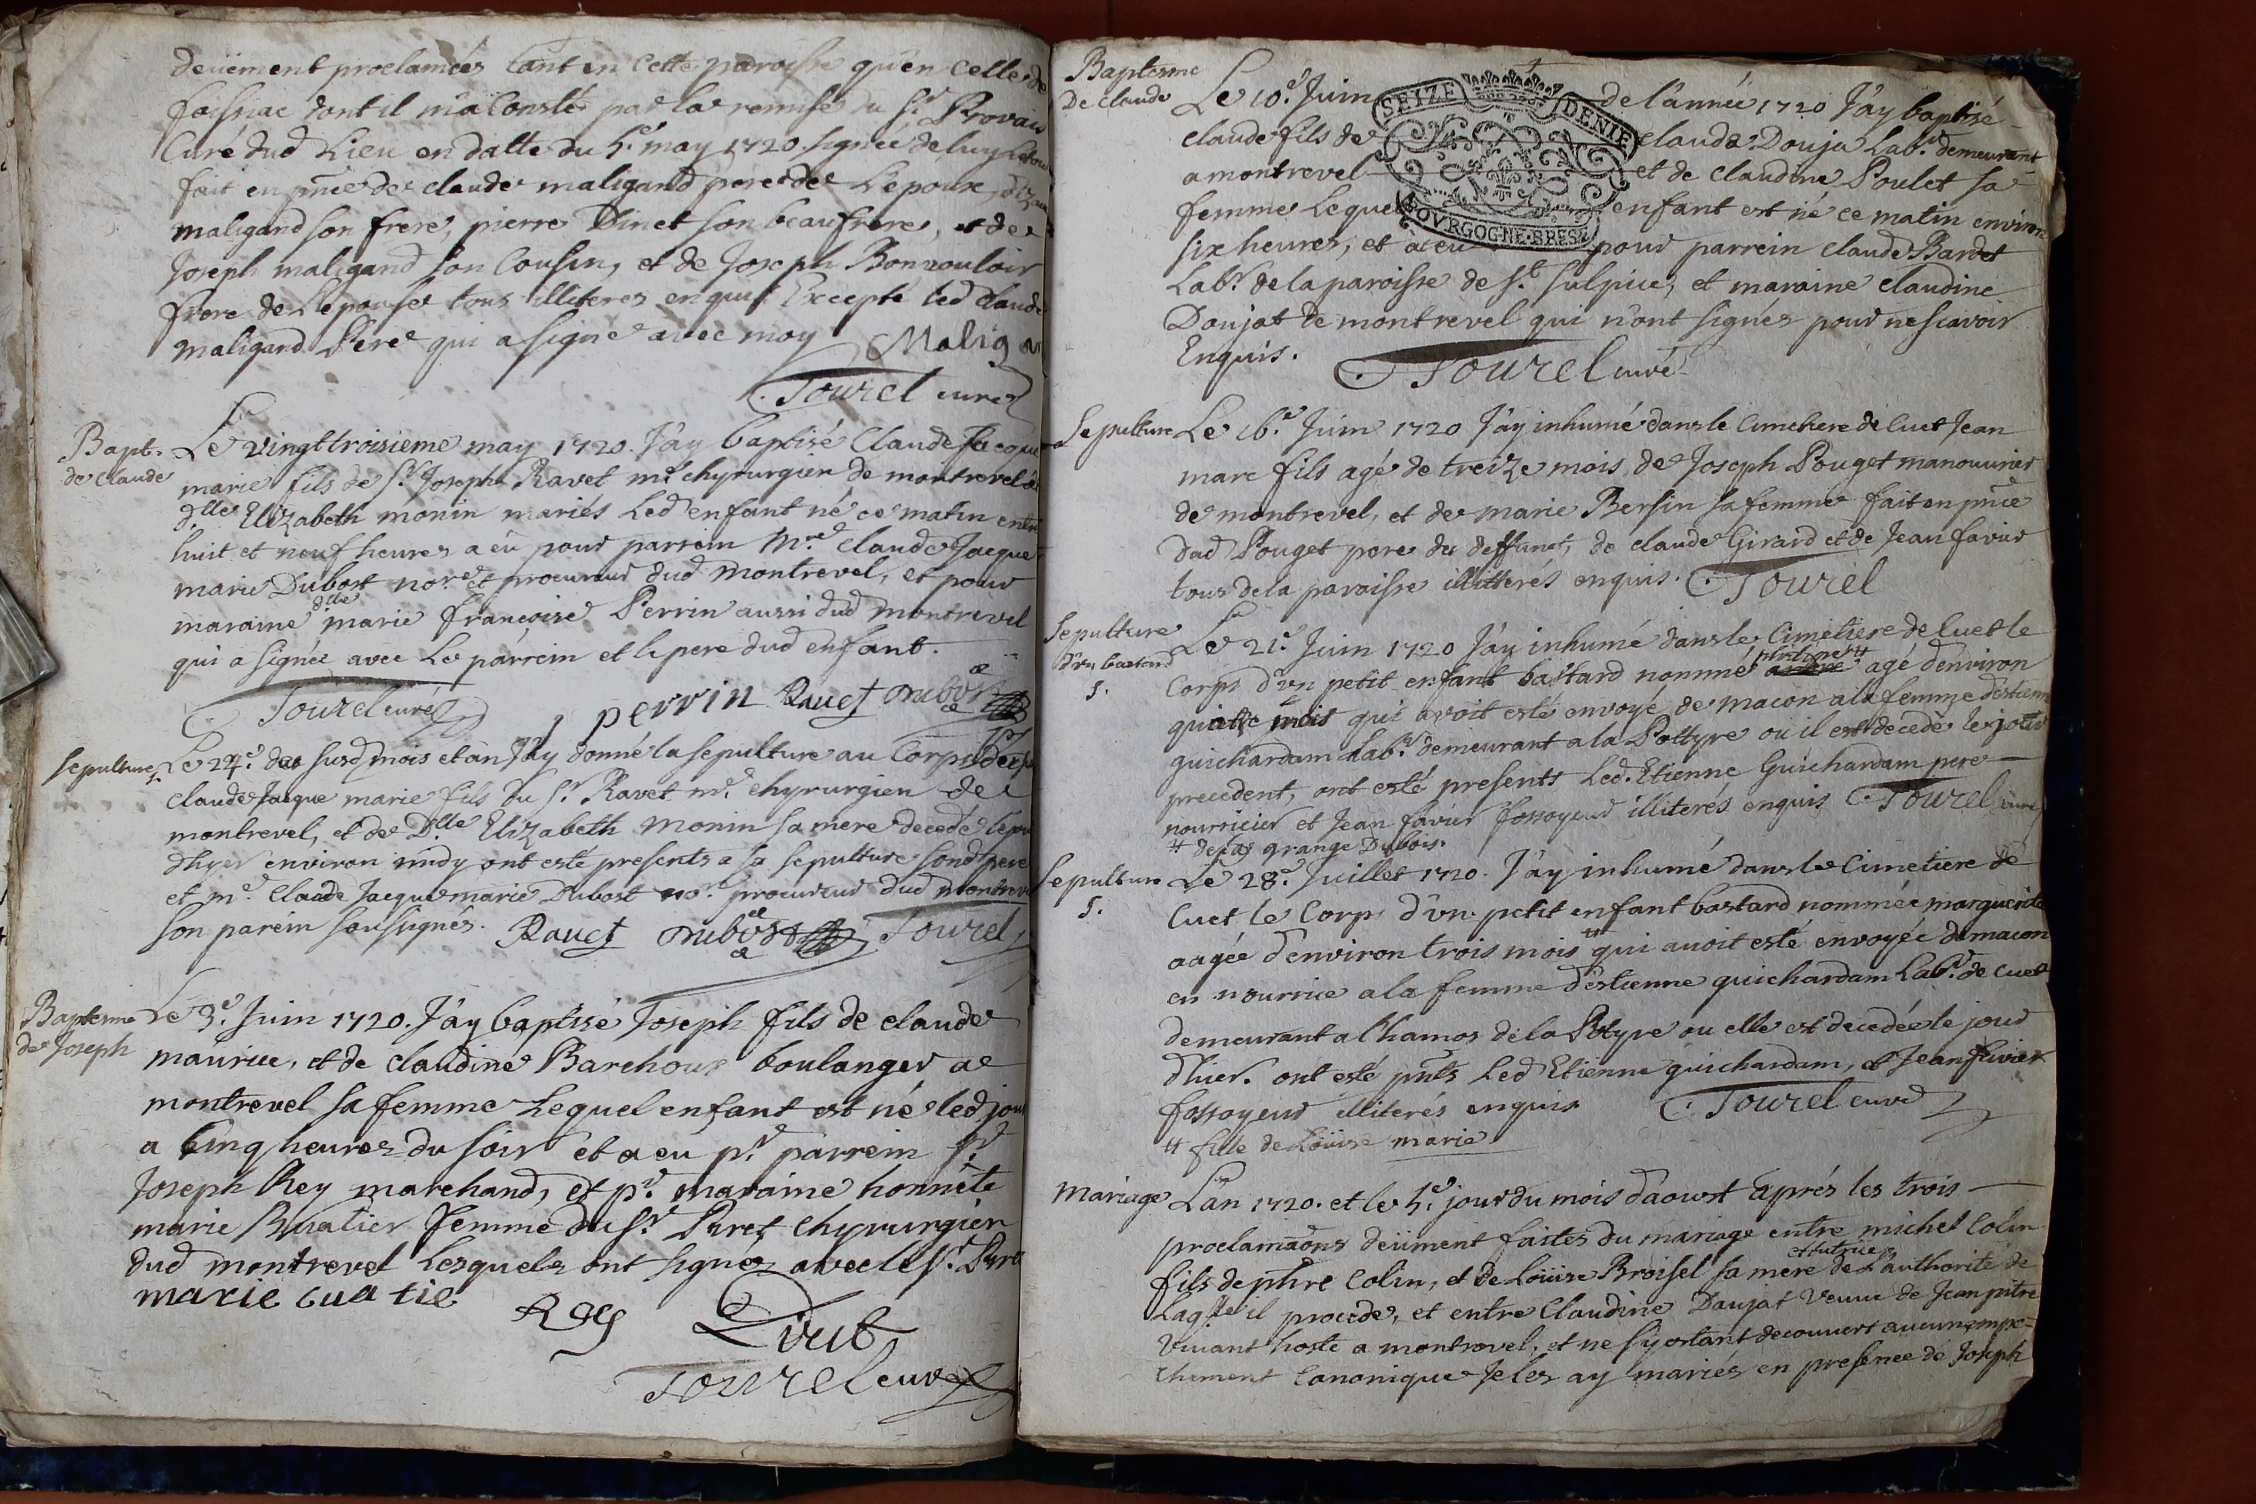 deüement proclamées tant en cette paroisse qu'en celle de
foissiac dont il m'a Consté par la remise du Sr. Provais
Curé dud Lieu en datte du 5e. may 1720. signée de luy
fait en pñce de claude maligand pere de L'epoux,
maligand son frere, pierre Dinet son beaufrere, et de
Joseph maligand son Cousin, et de Joseph Bonvouloir
frere de L'epouse tous illiteres enquis Excepté led Claude
maligand Pere qui a signé avec moy Malig
Tourel curé
Bapt.
de Claude
Le vingt troisieme may 1720. J'ay baptisé Claude Jacque
marie fils de Sr. Joseph Ravet mr. chyrurgien de montrevel
dlle Elizabeth monin mariés Led enfant né ce matin entre
huit et neuf heures a eü pour parrein Mre. Claude Jacque
marie Dubost nore. et procureur dud montrevel, et pour
maraine dlle marie françoise Perrin aussi dud montrevel
qui a signée avec Le parrein et le pere dud enfant.
Tourel curé perrin Ravet Dubost
Sepulture
Le 24e. du susd mois et an J'ay donné la sepulture au Corps de
claude Jacque marie fils du Sr. Ravet mr. chyrurgien de
montrevel, et de Dlle Elizabeth Monin sa mere decedé le jour
d'hyer environ midy ont esté presents a sa sepulture sond pere
et mr. Claude Jacque marie Dubost nore. procureur dud montrevel
son parein soussignés. Ravet Dubost Tourel
Baptesme
de Joseph
Le 3e. Juin 1720. J'ay baptisé Joseph fils de claude
maurice, et de claudine Barehoux boulanger a
montrevel sa femme Lequel enfant est né led jour
a Cinq heures du soir et a eu pr. parrein Sr.
Joseph Rey marchand, et pr. maraine honnête
marie femme du Sr. Puret Chyrurgien
dud montrevel Lesquels ont signés avec le Sr.
marie cuatie Rey
Tourel curé
Baptesme
De Claude
SEIZE DENIE
BOVRGOGNE BRESZ
Le 10e. Juin de l'année 1720 J'ay baptisé
claude fils de claude Douja Labr. demeurant
a montrevel et de claudine Poulet sa
femme Lequel enfant est né ce matin environ
six heures, et a eu pour parrein claude Bardet
Labr. de la paroisse de St. Sulpice, et maraine claudine
Doujat de montrevel qui n'ont signés pour ne scavoir
Enquis. Tourel curé
Sepulture
Le 16e. Juin 1720 J'ay inhumé dans le Cimetiere de Cuet Jean
marc fils agé de treize mois de Joseph Pouget manouvrier
de montrevel, et de marie Bersin sa femme fait en pñce
dud Pouget pere du deffunct, de claude Girard et de Jean favier
tous de la paroisse illitterés enquis. Tourel
Sepulture
d'vn bastard
s.
Le 21e. Juin 1720 J'ay inhumé dans le Cimetiere de Cuet le
Corps d'vn petit enfant bastard nommé agé d'environ
quinze mois qui avoit esté envoyé de macon a la femme d'estienne
guichardam Labr. demeurant a la Pottyre ou il est decedé le jour
precedent, ont esté presents Led. Etienne Guichardam pere
nourricier et Jean favier fossoyeur illiterés enquis Tourel curé
# de la grange Dubois.
Sepulture
s.
Le 28e. Juillet 1720. J'ay inhumé dans le Cimetiere de
Cuet le Corps d'vn petit enfant bastard nommée marguerite
aagée d'environ trois mois # qui avoit esté envoyée de macon
en nourrice a la femme d'estienne guichardam Labr. de cuet
demeurant a l'hamos de la Potyre ou elle est decedée le jour
d'hier. ont esté pnts Led Etienne guichardam, et Jean favier
fossoyeur illiterés enquis Tourel curé
# fille de Loüise marie
Mariage
L'an 1720. et le 5e. jour du mois d'aoust aprés les trois
proclamaons deüment faites du mariage entre michel Colin
fils de phre Colin, et de Loüise Broisel sa mere et tutrice de L'authorité de
Laqlle il procede, et entre Claudine Daujat veuve de Jean pitre
vivant hoste a montrevel, et ne s'y estant decouvert aucun empe=
chement Canonique Je les ay mariés en presence de Joseph